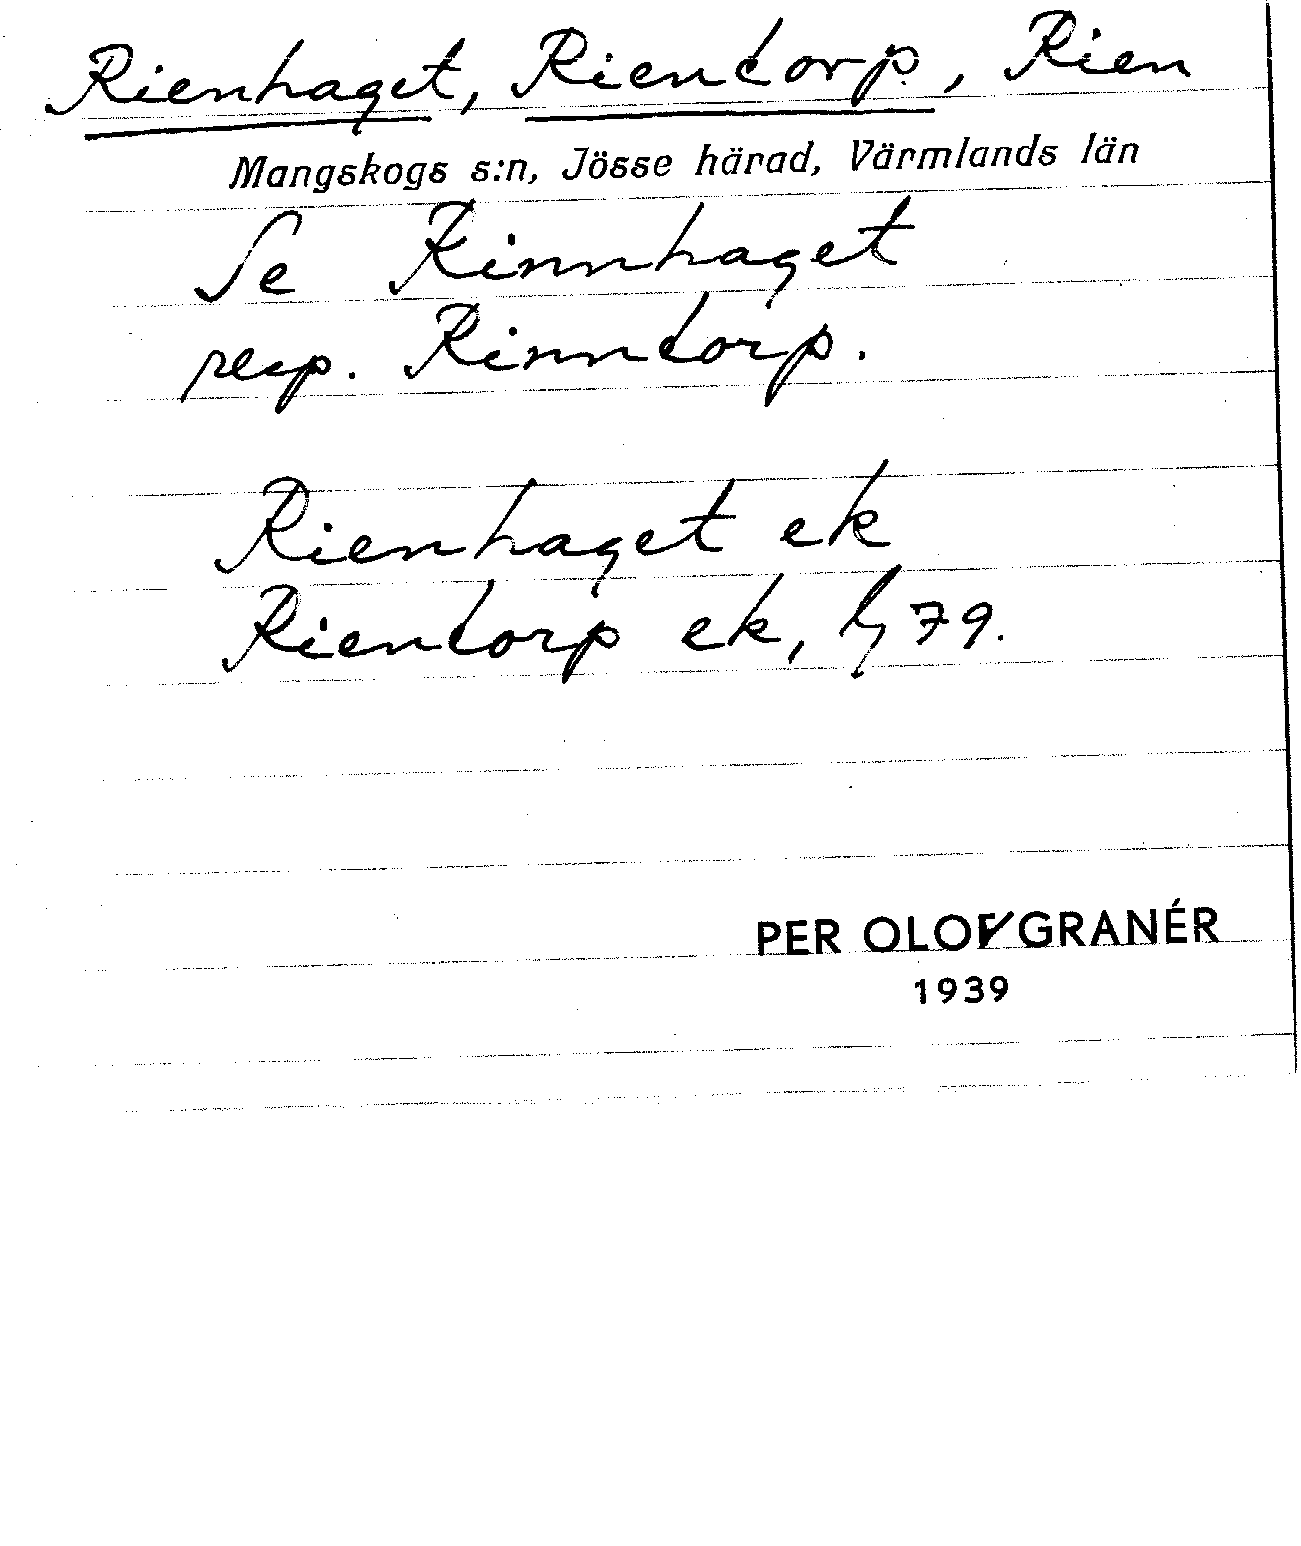 Rienhaget, Rientorp, Rien
Mangskogs s:n, Jösse härad, Värmlands län
Se Rinnhaget
resp. Rinntorp.
Rienhaget ek
Rientorp ek, 79.
PER OLOF GRANÉR
1939